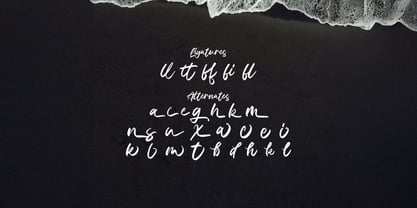 Ligatures
ll tt ff fi fl
Alternates
a c e g h k m
n s u x w o e i
k i m t b d h k l